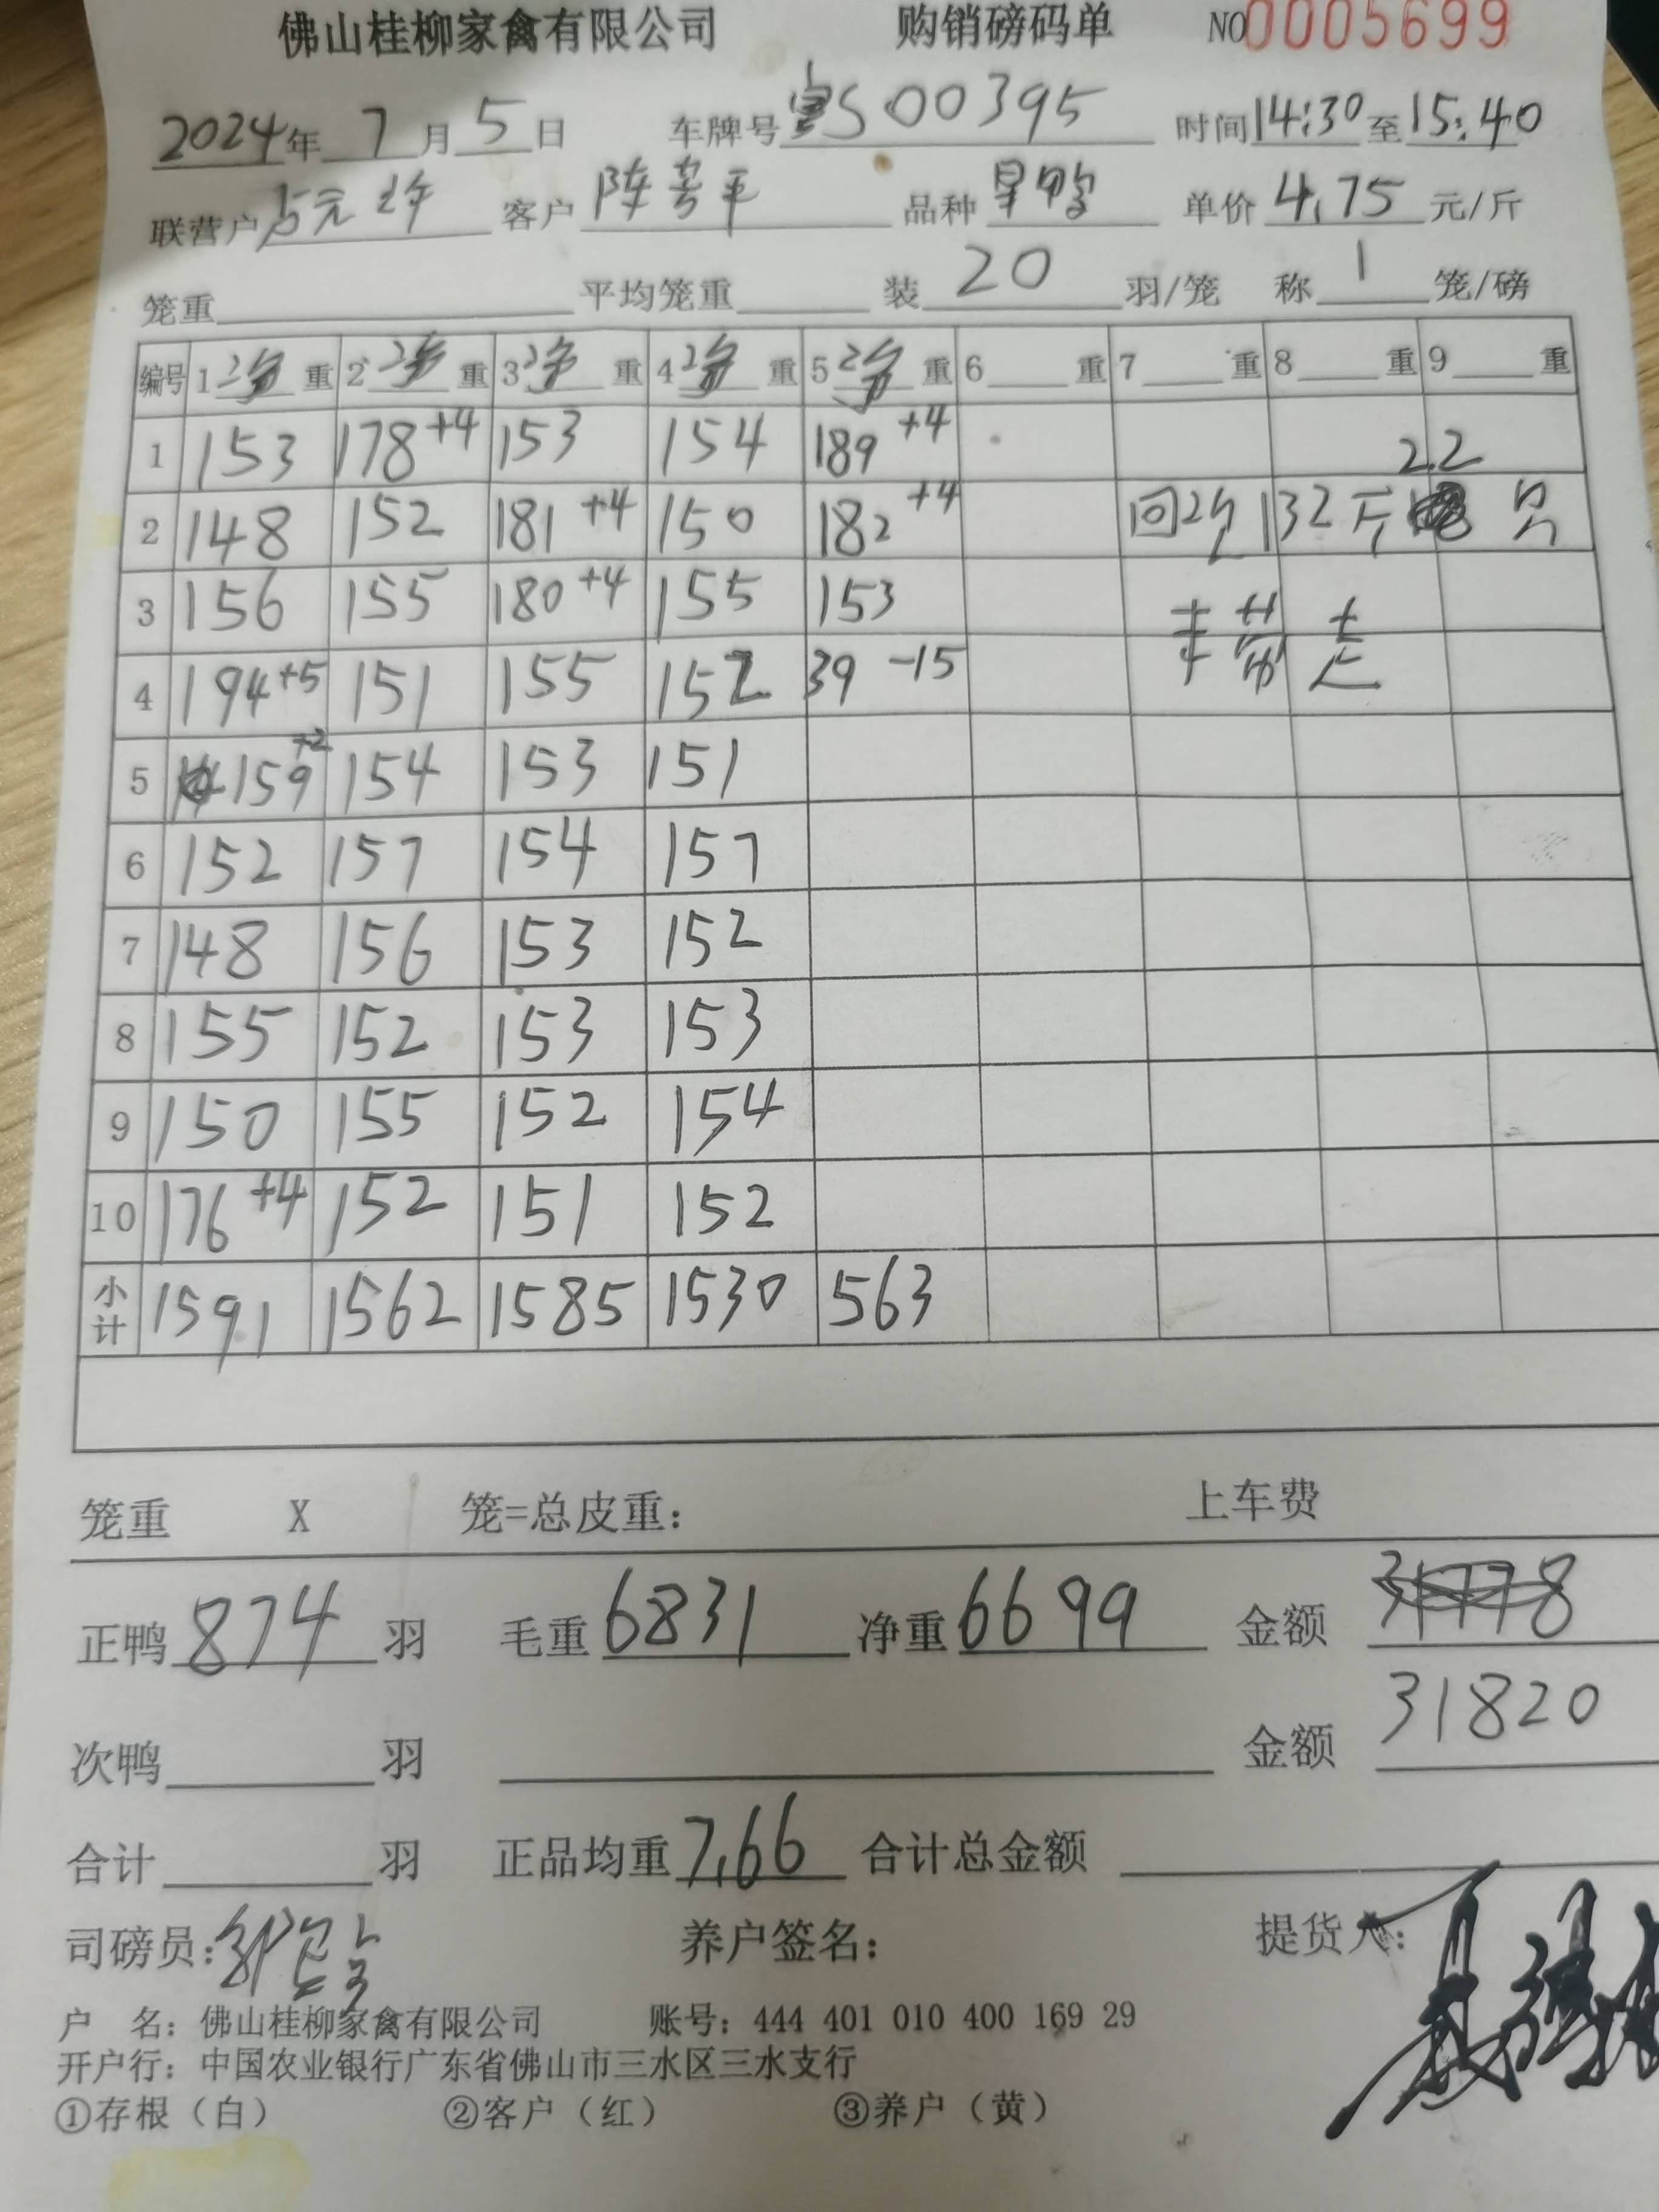 佛山桂柳家禽有限公司 购销磅码单 NO0005699
2024年 7 月 5 日 车牌号 粤S00395 时间 14:30 至 15:40
联营户 客户 陈 平 品种 单价 4.75 元/斤
笼重 平均笼重 装 20 羽/笼 称 1 笼/磅
编号 1 净 重 2 净 重 3 净 重 4 净 重 5 净 重 6 重 7 重 8 重 9 重
1 153 178+4 153 154 189+4 22
2 148 152 181+4 150 182+4 回 132斤 只
3 156 155 180+4 155 153 未带走
4 194+5 151 155 152 39-15
5 159+2 154 153 151
6 152 157 154 157
7 148 156 153 152
8 155 152 153 153
9 150 155 152 154
10 176+4 152 151 152
小计 1591 1562 1585 1530 563
笼重 X 笼=总皮重: 上车费
正鸭 874 羽 毛重 6831 净重 6699 金额 31778
次鸭 羽 金额 31820
合计 羽 正品均重 7.66 合计总金额
司磅员: 养户签名: 提货人:
户 名:佛山桂柳家禽有限公司 账号:444 401 010 400 169 29
开户行:中国农业银行广东省佛山市三水区三水支行
①存根(白) ②客户(红) ③养户(黄)